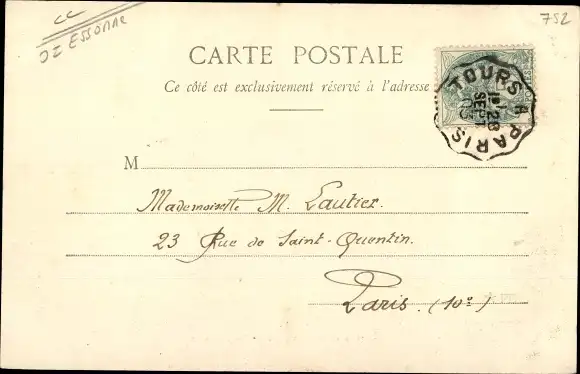 CC
752
DZ ESSONNE
CARTE POSTALE
Ce côté est exclusivement réservé à l'adresse
TOURS A PARIS
1º
28
SEPT
03
M
Mademoiselle M. Lautier.
23 Rue de Saint-Quentin.
Paris. (10e)